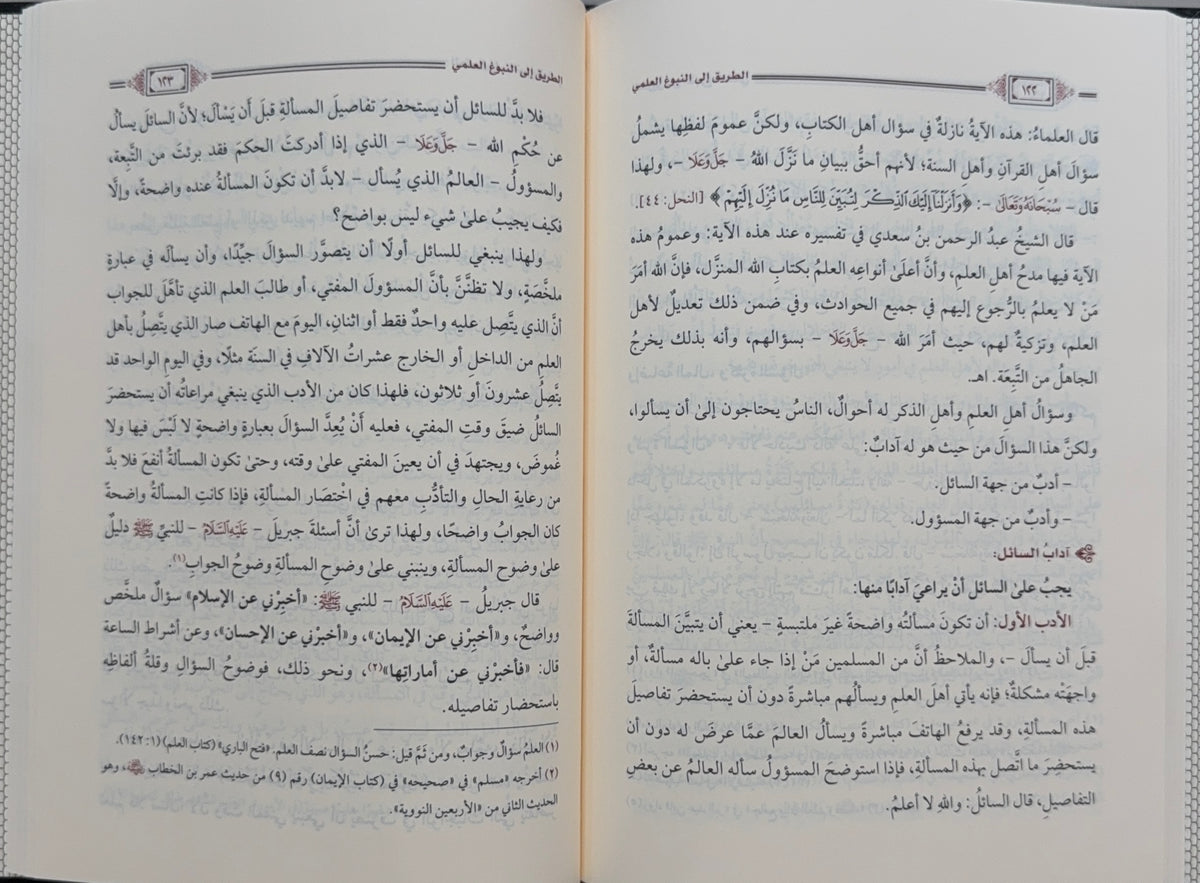 ١٢٢
الطريق إلى النبوغ العلمي
قال العلماءُ: هذه الآيةُ نازلةٌ في سؤال أهل الكتابِ، ولكنَّ عمومَ لفظِها يشملُ
سؤالَ أهلِ القرآنِ وأهلِ السنة؛ لأنهم أحقُّ ببيانِ ما نَزَّلَ اللهُ – جَلَّ وَعَلَا –، ولهذا
قال – سُبْحَانَهُ وَتَعَالَى –: ﴿وَأَنزَلْنَآ إِلَيْكَ الذِّكْرَ لِتُبَيِّنَ لِلنَّاسِ مَا نُزِّلَ إِلَيْهِمْ﴾ [النحل: ٤٤].
قال الشيخُ عبدُ الرحمنِ بنُ سعدي في تفسيره عند هذه الآية: وعمومُ هذه
الآية فيها مدحُ أهل العلمِ، وأنَّ أعلَىٰ أنواعِه العلمُ بكتابِ الله المنزَّل، فإنَّ الله أمَرَ
مَنْ لا يعلمُ بالرُّجوع إليهم في جميع الحوادث، وفي ضمن ذلك تعديلٌ لأهل
العلم، وتزكيةٌ لهم، حيث أمَرَ الله – جَلَّ وَعَلَا – بسؤالهم، وأنه بذلك يخرجُ
الجاهلُ من التَّبِعَة. اهـ.
وسؤالُ أهل العلمِ وأهل الذكر له أحوالٌ، الناسُ يحتاجون إلىٰ أن يسألوا،
ولكنَّ هذا السؤالَ من حيث هو له آدابٌ:
– أدبٌ من جهة السائل.
– وأدبٌ من جهة المسؤول.
آدابُ السائل:
يجبُ علىٰ السائل أنْ يراعيَ آدابًا منها:
الأدب الأول: أن تكونَ مسألتُه واضحةً غيرَ ملتبسةٍ – يعني أن يتبيَّنَ المسألةَ
قبلَ أن يسألَ –، والملاحظُ أنَّ من المسلمين مَنْ إذا جاء علىٰ باله مسألةٌ، أو
واجهَتْه مشكلةٌ؛ فإنه يأتي أهلَ العلمِ ويسألُهم مباشرةً دون أن يستحضرَ تفاصيل
هذه المسألةِ، وقد يرفعُ الهاتفَ مباشرةً ويسألُ العالمَ عمَّا عرضَ له دون أن
يستحضِرَ ما اتَّصل بهذه المسألةِ، فإذا استوضحَ المسؤولُ سأله العالمُ عن بعضِ
التفاصيلِ، قال السائلُ: واللهِ لا أعلمُ.
الطريق إلى النبوغ العلمي
١٢٣
فلا بدَّ للسائل أن يستحضرَ تفاصيلَ المسألةِ قبلَ أَن يَسْألَ؛ لأنَّ السائلَ يسألُ
عن حُكْمِ الله – جَلَّ وَعَلَا – الذي إذا أدركتَ الحكمَ فقد برئتَ من التَّبِعة،
والمسؤولُ – العالمُ الذي يُسأل – لابدَّ أن تكونَ المسألةُ عنده واضحةً، وإلَّا
فكيف يجيبُ علىٰ شيء ليس بواضح؟
ولهذا ينبغي للسائل أولًا أن يتصوَّر السؤالَ جيِّدًا، وأن يسألَه في عبارةٍ
ملخَّصَةٍ، ولا تظنَّنَّ بأنَّ المسؤولَ المفتي، أو طالبَ العلم الذي تأهَّلَ للجواب
أنَّ الذي يتَّصِل عليه واحدٌ فقط أو اثنانِ، اليومَ مع الهاتف صار الذي يتَّصِلُ بأهلِ
العلمِ من الداخل أو الخارج عشراتُ الآلافِ في السنَة مثلًا، وفي اليوم الواحد قد
يتَّصِلُ عشرونَ أو ثلاثون، فلهذا كان من الأدب الذي ينبغي مراعاتُه أن يستحضرَ
السائلُ ضيقَ وقتِ المفتي، فعليه أَنْ يُعِدَّ السؤالَ بعبارةٍ واضحةٍ لا لَبْسَ فيها ولا
غُموضَ، ويجتهدَ في أن يعينَ المفتي علىٰ وقته، وحتىٰ تكون المسألةُ أنفعَ فلا بدَّ
من رعايةِ الحالِ والتأدُّبِ معهم في اخْتصار المسألةِ، فإذا كانتِ المسألةُ واضحةً
كان الجوابُ واضحًا، ولهذا ترىٰ أنَّ أسئلةَ جبريلَ – عَلَيْهِ السَّلَامُ – للنبيِّ ﷺ دليلٌ
علىٰ وضوح المسألةِ، وينبني علىٰ وضوحِ المسألةِ وضوحُ الجوابِ(١).
قال جبريلُ – عَلَيْهِ السَّلَامُ – للنبي ﷺ: «أخبِرْني عن الإسلام» سؤالٌ ملخَّص
وواضحٌ، و«أخبِرْني عن الإيمان»، و«أخبرْني عن الإحسان»، وعن أشراط الساعة
قال: «فأخبرْني عن أماراتِها»(٢)، ونحو ذلك، فوضوحُ السؤالِ وقلةُ ألفاظِه
باستحضار تفاصيله.
(١) العلمُ سؤالٌ وجوابٌ، ومن ثَمَّ قيل: حسنُ السؤال نصف العلم. «فتح الباري» (كتاب العلم) (١: ١٤٢).
(٢) أخرجه «مسلم» في «صحيحه» في (كتاب الإيمان) رقم (٩) من حديث عمر بن الخطاب، وهو
الحديث الثاني من «الأربعين النووية».